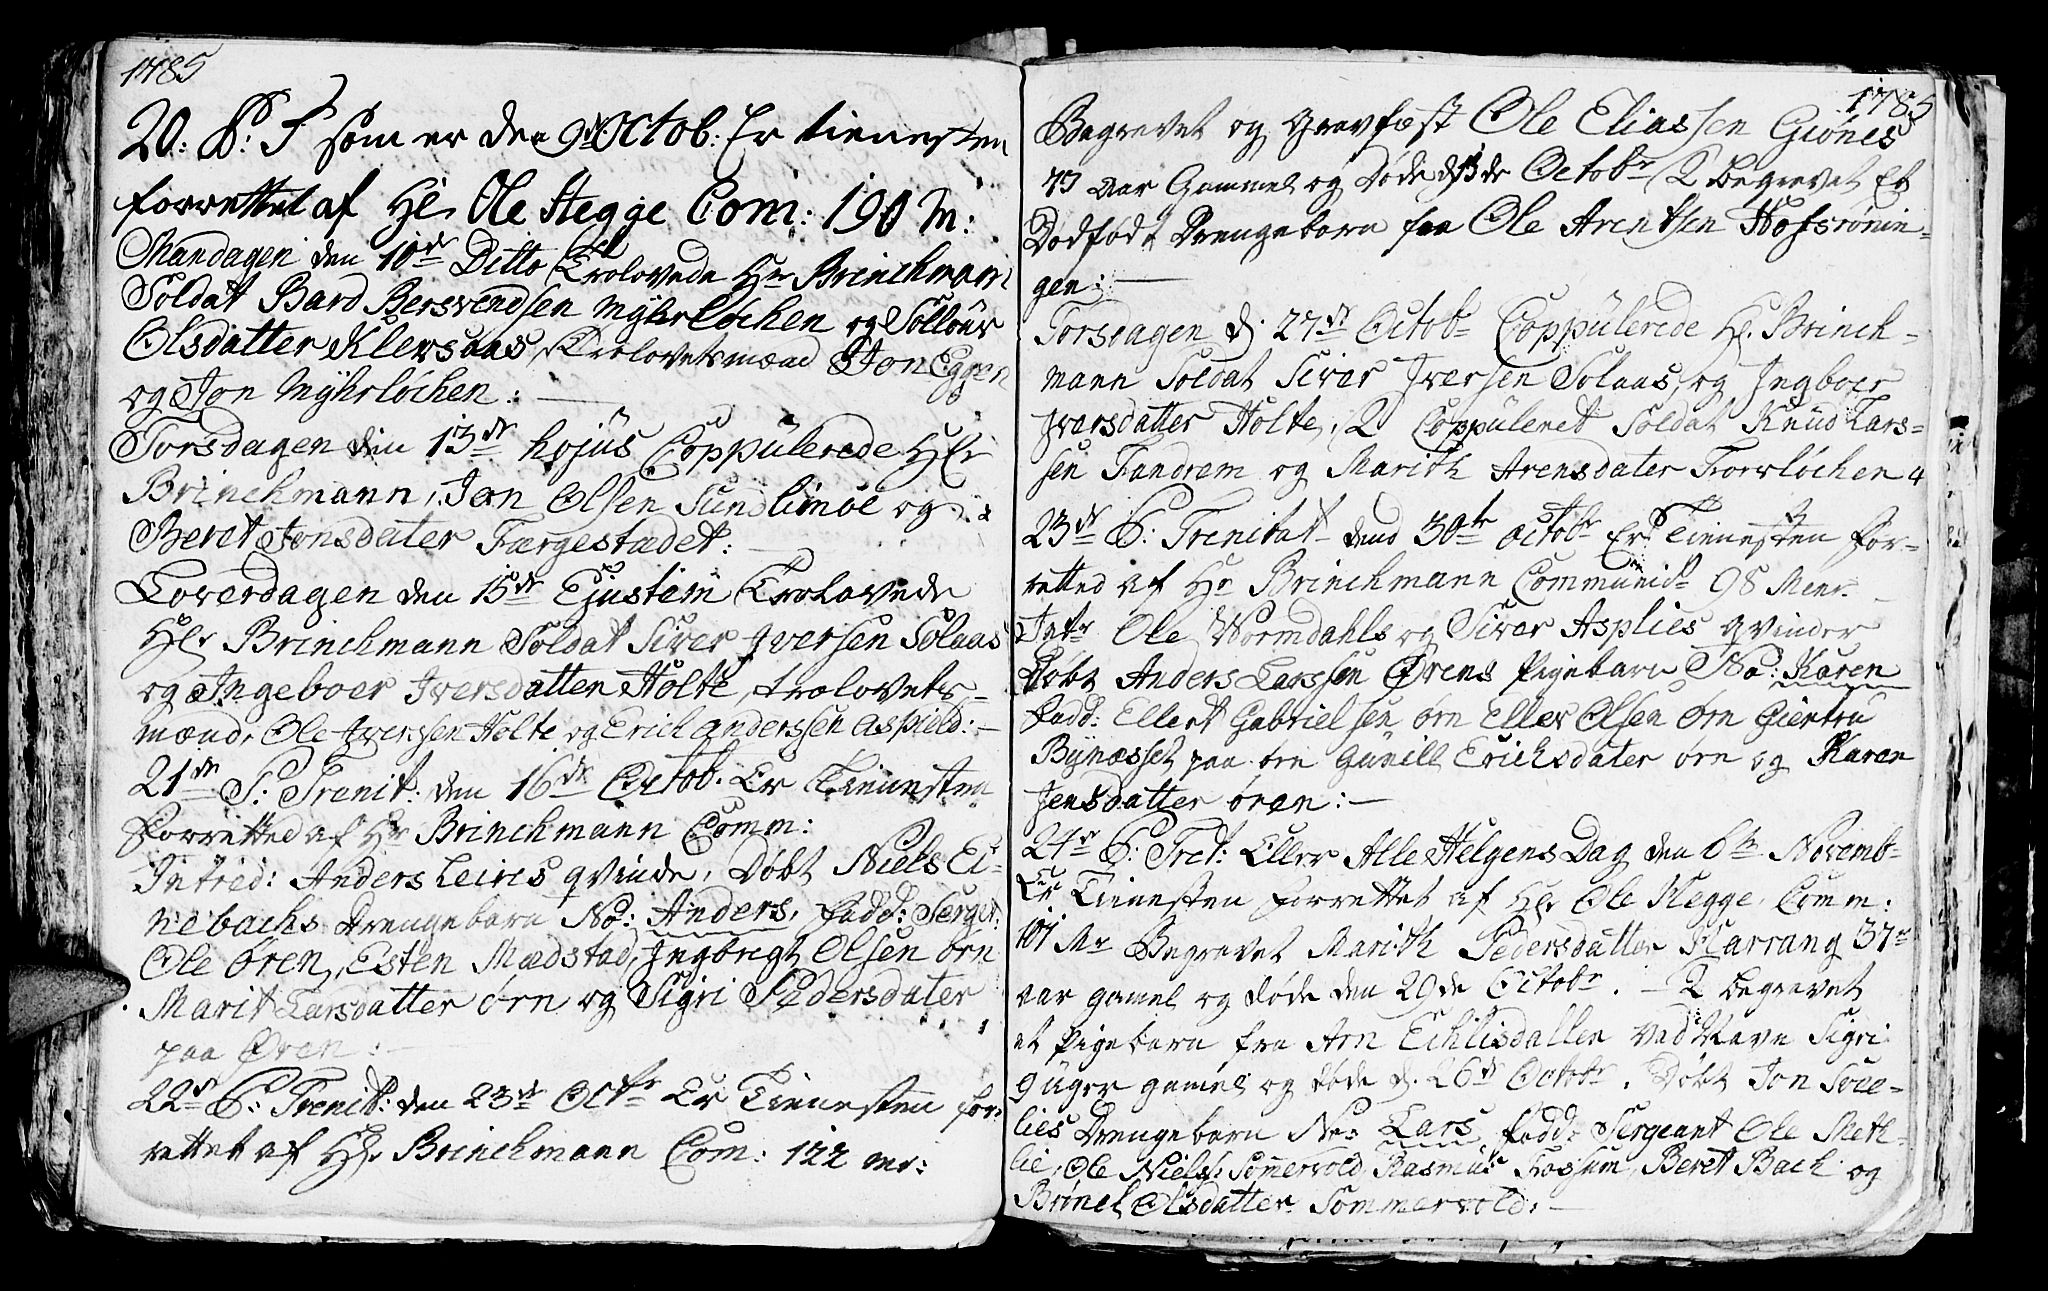 1785
20: S: T som er den 9de Octob: Er tienesten
forrettet af Hl Ole Hegge Com: 190 M:
Mandagen den 10de Ditto Trolovede Hr Brinchmann
Soldat Bard Bersvendsen Myhrløchen og Sollour
Olsdatter Klevsaas, Trolovetsmænd Jon Eggen
og Jon Myhrløchen: —
Torsdagen den 13de hojus Coppulerede Hlr
Brinchmann, Jon Olsen Sundlimoe og
Beret Jonsdater Færgestædet: —
Løverdagen den 15de Ejustem Trolovede
Hlr Brinchmann Soldat Siver Iversen Solaas
og Ingeboer Iversdatter Holte, trolovets-
mænd, Ole Iverssen Holte og Erich anderssen aspield: —
21de S: Trenit: den 16de Octob: Er Tienesten
forretted af Hr Brinchmann Comm:
Intred: Anders Leires qvinde, Døbt Niels Ei-
nebachs Drengebarn No: Anders, fadd: Serget:
Ole Øren, Esten Mædstad, Ingbrigt Olsen ørn
Marit Larsdatter ørn og Sigri Pedersdater
paa Øren: —
22de S: Trenit: den 23de Octbr Er Tienesten for-
rettet af Hr Brinchmann Com: 122 mr:
1785
Begravet og Gravfæst Ole Eliassen Giønes
73 aar Gammel og Døde d 13de Octobr, 2 begravet Et
Dødfødt Drengebarn fra Ole Arentsen Hofsrønin-
gen: —
Torsdagen d: 27de Octobr Coppulerede Hr Brinch-
mann Soldat Siver Iversen Solaas, og Ingboer
Iversdatter Holte, 2 Coppuleret Soldat Knud Lars-
sen Fandrem og Marith Arensdater Trorsløchen
23de S: Trenitat dend 30te Octobr Er Tienesten for-
retted af Hr Brinchmann Communic 98 Menr.
Intr Ole Wormdahls og Siver Asplies qvinder
Døbt Anders Larssen Ørens Pigebarn No: Karen
fadd: Ellert Gabrielsen ørn Eller Olsen ørn Giertru
Bynæsset paa ørn Gunill Erichsdater ørn og Karen
Jensdatter øren: —
24de S: Tret: Eller Alle Helgens Dag den 6te Novemb-
Er Tienesten forrettet af Hr Ole Hegge, Comm:
101 Mr Begravet Marith Pedersdatter Harrang 37
aar gamel og døde den 29de Octobr. — 2 begravet
et Pigebarn fra Arn Echlisdallen ved Navn Sigri
9 uger gamel og døde d. 26de Octobr. Døbt Jon Svee-
lies Drengebarn No: Lars, fadd: Sergeant Ole Meth-
lie, Ole Niels: Somervold Rasmus Fossum, Beret Bach og
Brønel Olsdatter Sommervold: —